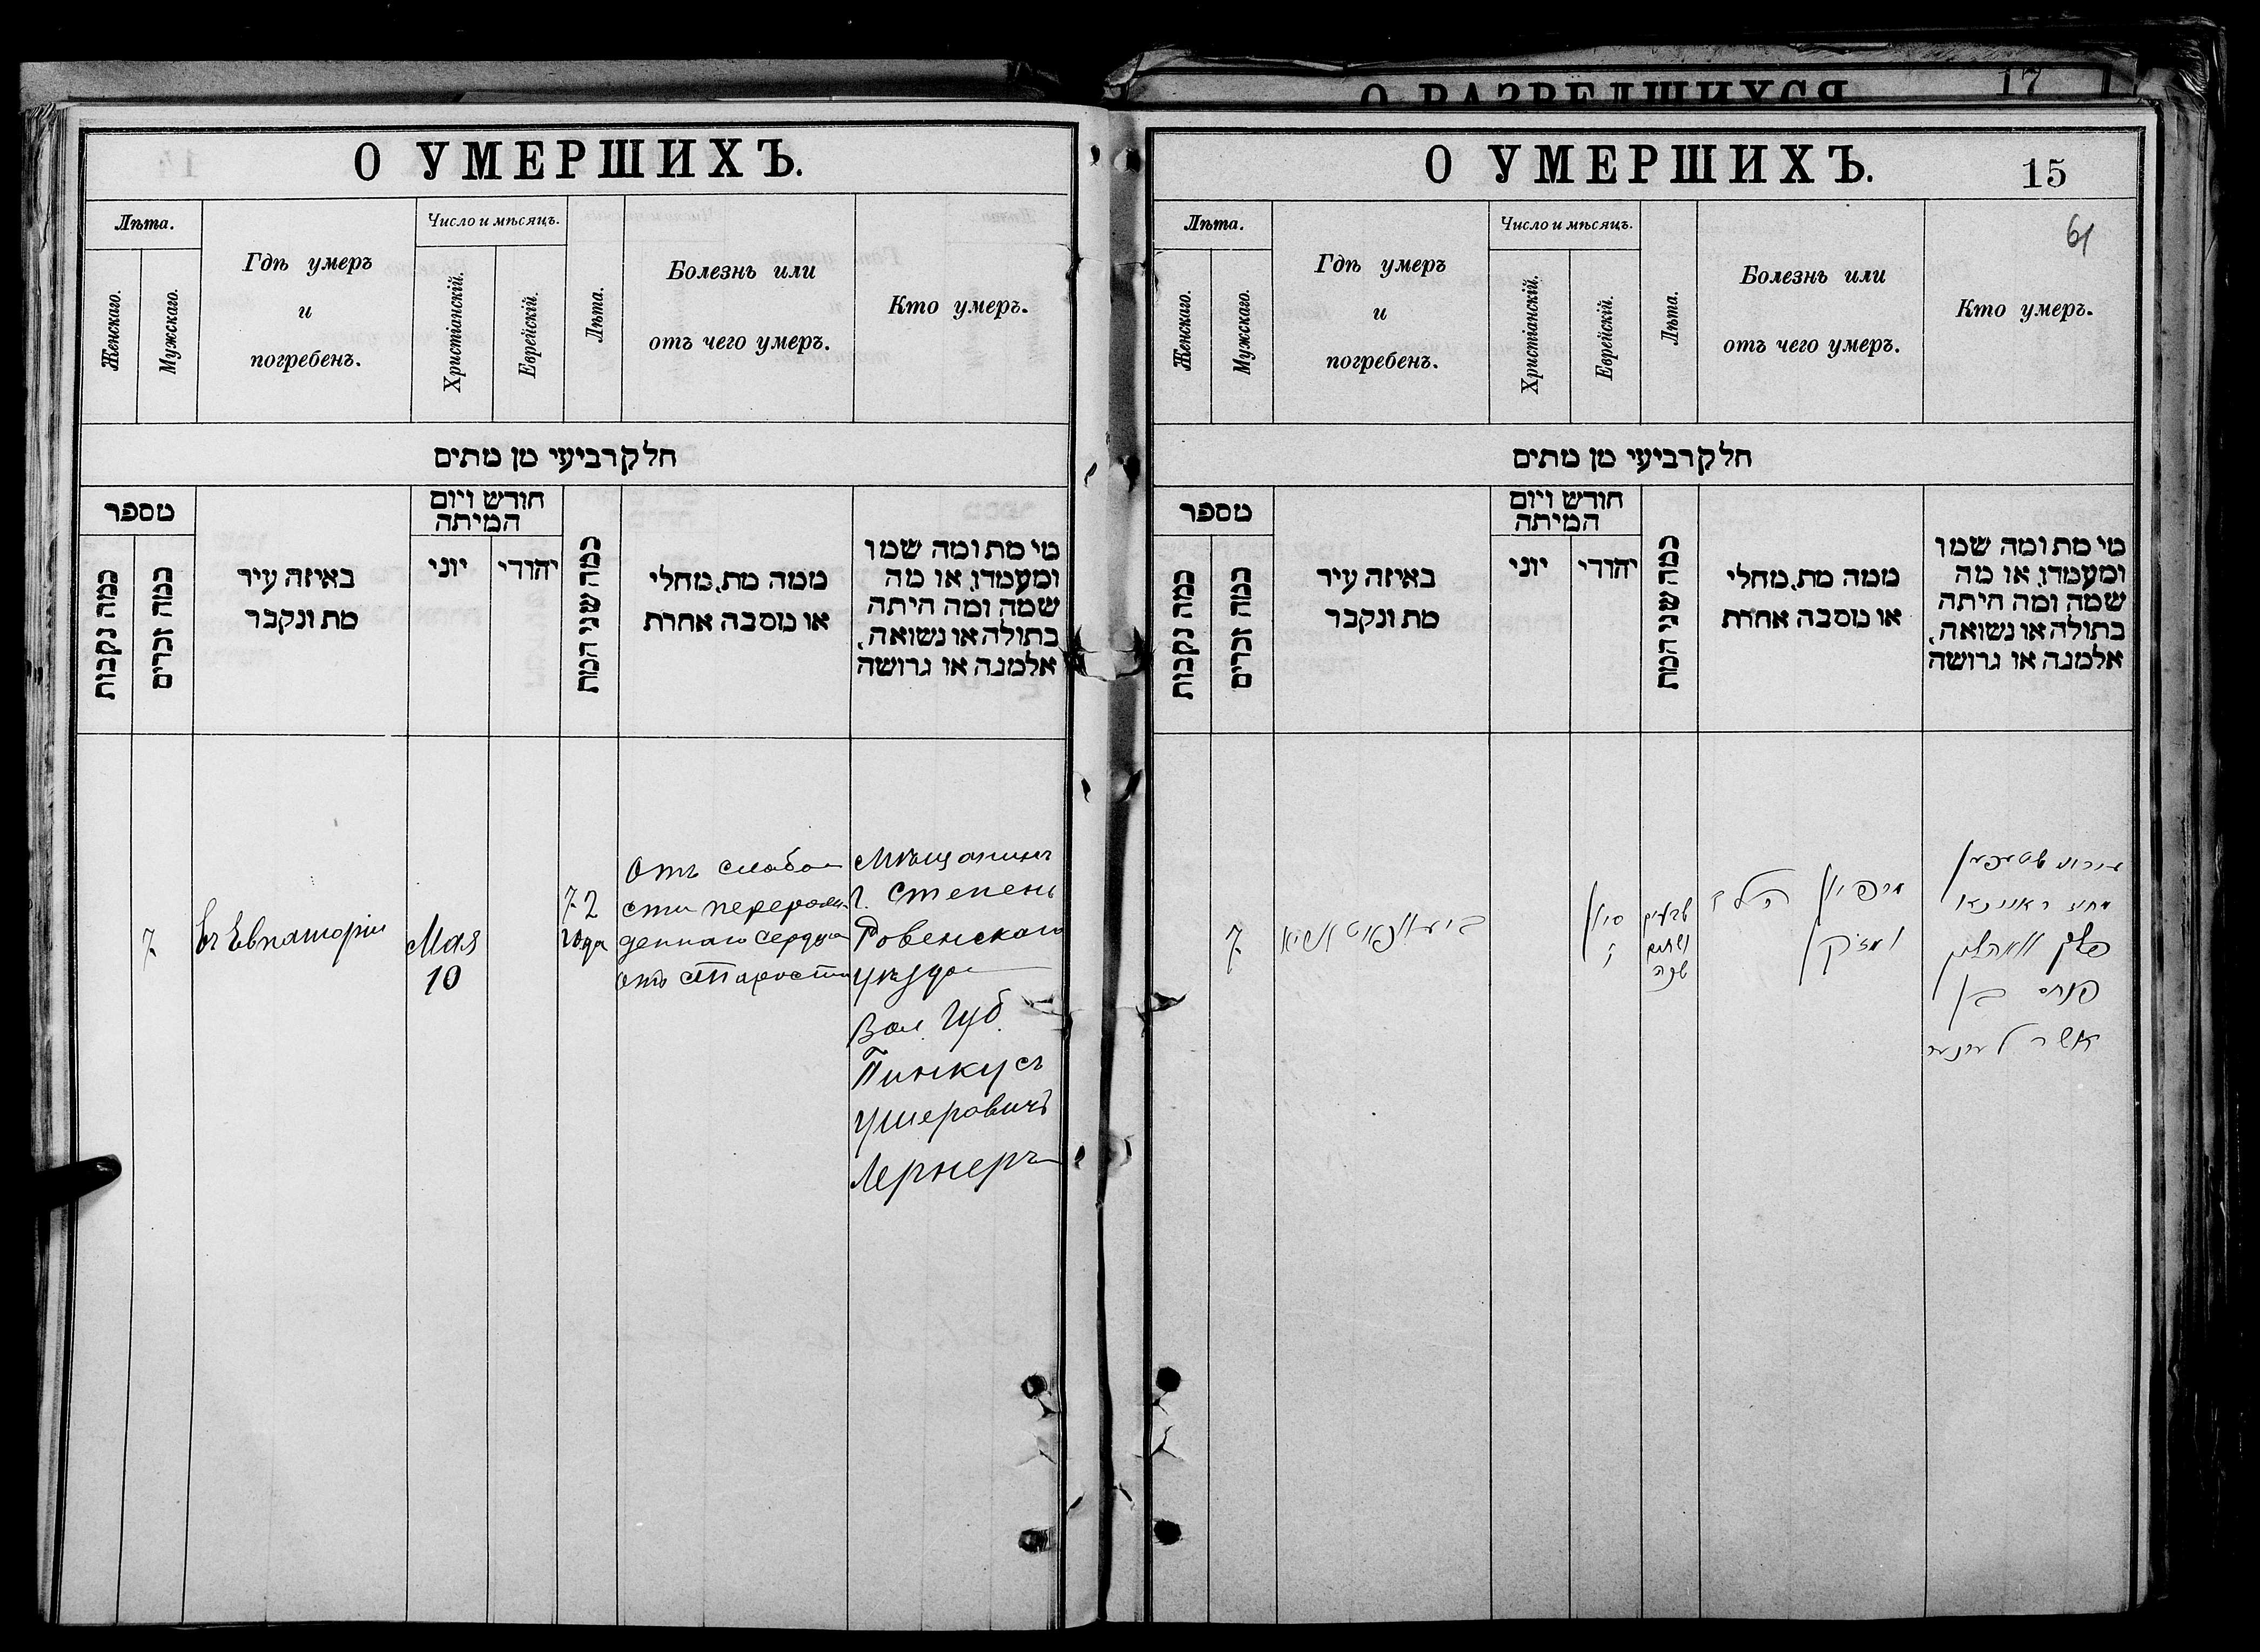 О РАЗВЕДШИХСЯ
17
О УМЕРШИХЪ.
Лѣта.
Женскаго.
Мужскаго.
Гдѣ умеръ
и
погребенъ.
Число и мѣсяцъ.
Христіанскій.
Еврейскій.
Лѣта.
Болезнь или
отъ чего умеръ.
Кто умеръ.
חלק רביעי מן מתים
מספר
כמה נקבות
כמה זכרים
באיזה עיר
מת ונקבר
חודש ויום
המיתה
יוני
יהודי
כמה שני המת
ממה מת, מחלי
או מסבה אחרת
מי מת ומה שמו
ומעמדו, או מה
שמה ומה היתה
בתולה או נשואה,
אלמנה או גרושה
7
въ Евпаторіи
Мая
10
72
года
Отъ слабо
сти перерож-
деннаго сердца
отъ старости
Мѣщанинъ
г. Степень
Ровенскаго
уѣзда
Вол. Губ.
Пинкусъ
Ушеровичъ
Лернеръ
О УМЕРШИХЪ.
15
61
Лѣта.
Женскаго.
Мужскаго.
Гдѣ умеръ
и
погребенъ.
Число и мѣсяцъ.
Христіанскій.
Еврейскій.
Лѣта.
Болезнь или
отъ чего умеръ.
Кто умеръ.
חלק רביעי מן מתים
מספר
כמה נקבות
כמה זכרים
באיזה עיר
מת ונקבר
חודש ויום
המיתה
יוני
יהודי
כמה שני המת
ממה מת, מחלי
או מסבה אחרת
מי מת ומה שמו
ומעמדו, או מה
שמה ומה היתה
בתולה או נשואה,
אלמנה או גרושה
7
סיון
שבעים
ושתים
שנה
מרפיון הלב
ומזוקן
מחוז ראוונא
פלך וואהלין
פנחס בן
אשר לערנער